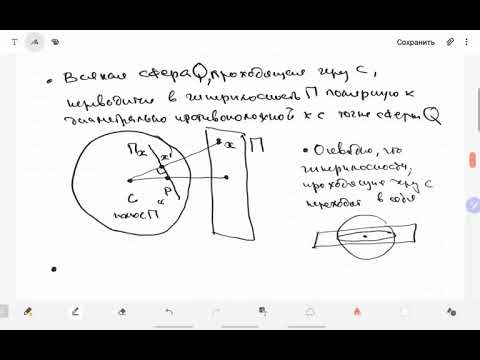 T
Сохранить
• Всякая сфера Q, проходящая чрз C,
переводится в гиперплоскость П полярную к
диаметрально противоположной к C точке сферы Q
Пx
x'
x
П
P
C
полюс П
• Очевидно, что
гиперплоскости,
проходящие чрз C
переходят в себя
•